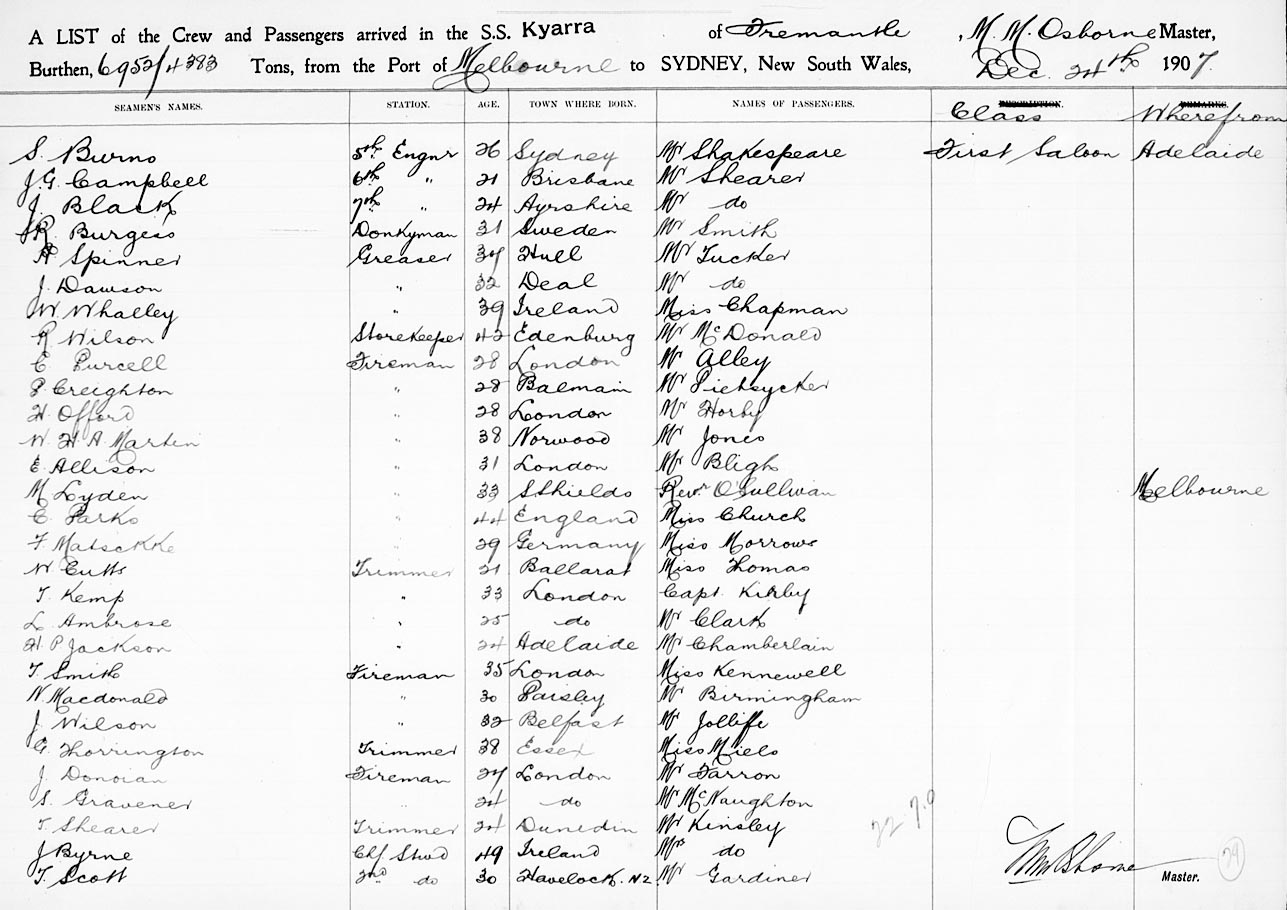 A LIST of the Crew and Passengers arrived in the S.S. Kyarra of Fremantle, M. M. Osborne Master,
Burthen, 6952/4383 Tons, from the Port of Melbourne to SYDNEY, New South Wales, Dec. 24th 1907.
SEAMEN'S NAMES. STATION. AGE. TOWN WHERE BORN. NAMES OF PASSENGERS. Class Wherefrom
S. Burns 5th Engnr 26 Sydney Mr Shakespeare First Saloon Adelaide
J.G. Campbell 6th " 21 Brisbane Mr Shearer
J. Black 7th " 24 Ayrshire Mr do
R. Burgess Donkyman 31 Sweden Mr Smith
A Spinner Greaser 34 Hull Mr Tucker
J. Dawson " 32 Deal Mr do
W. Whalley " 39 Ireland Miss Chapman
R Wilson Storekeeper 42 Edenburg Mr McDonald
E Purcell Fireman 28 London Mr Alley
P. Creighton " 28 Balmain Mr
H Offord " 28 London Mr Horby
W. H A Martin " 38 Norwood Mr Jones
E. Allison " 31 London Mr Bligh
M Lyden " 33 S Shields Revr O'Sullivan Melbourne
C. Parks " 44 England Miss Church
F. Matsckke " 29 Germany Miss Morrows
W Cutts Trimmer 21 Ballarat Miss Thomas
T. Kemp " 33 London Capt. Kirby
L. Ambrose " 25 do Mr Clark
H. P. Jackson " 24 Adelaide Mr Chamberlain
T. Smith Fireman 35 London Miss Kennewell
N Macdonald " 30 Paisley Mr Birmingham
J Wilson " 32 Belfast Mr Jolliffe
G. Thorrington Trimmer 38 Essex Miss Miels
J. Donoian Fireman 27 London Mr Farron
S. Gravener " 24 do Mr McNaughton
T. Shearer Trimmer 24 Dunedin Mr Kinsley
J Byrne Chf Stwd 49 Ireland Mrs do
T. Scott 2nd do 30 Havelock. NZ Mr Gardiner
Master.
29